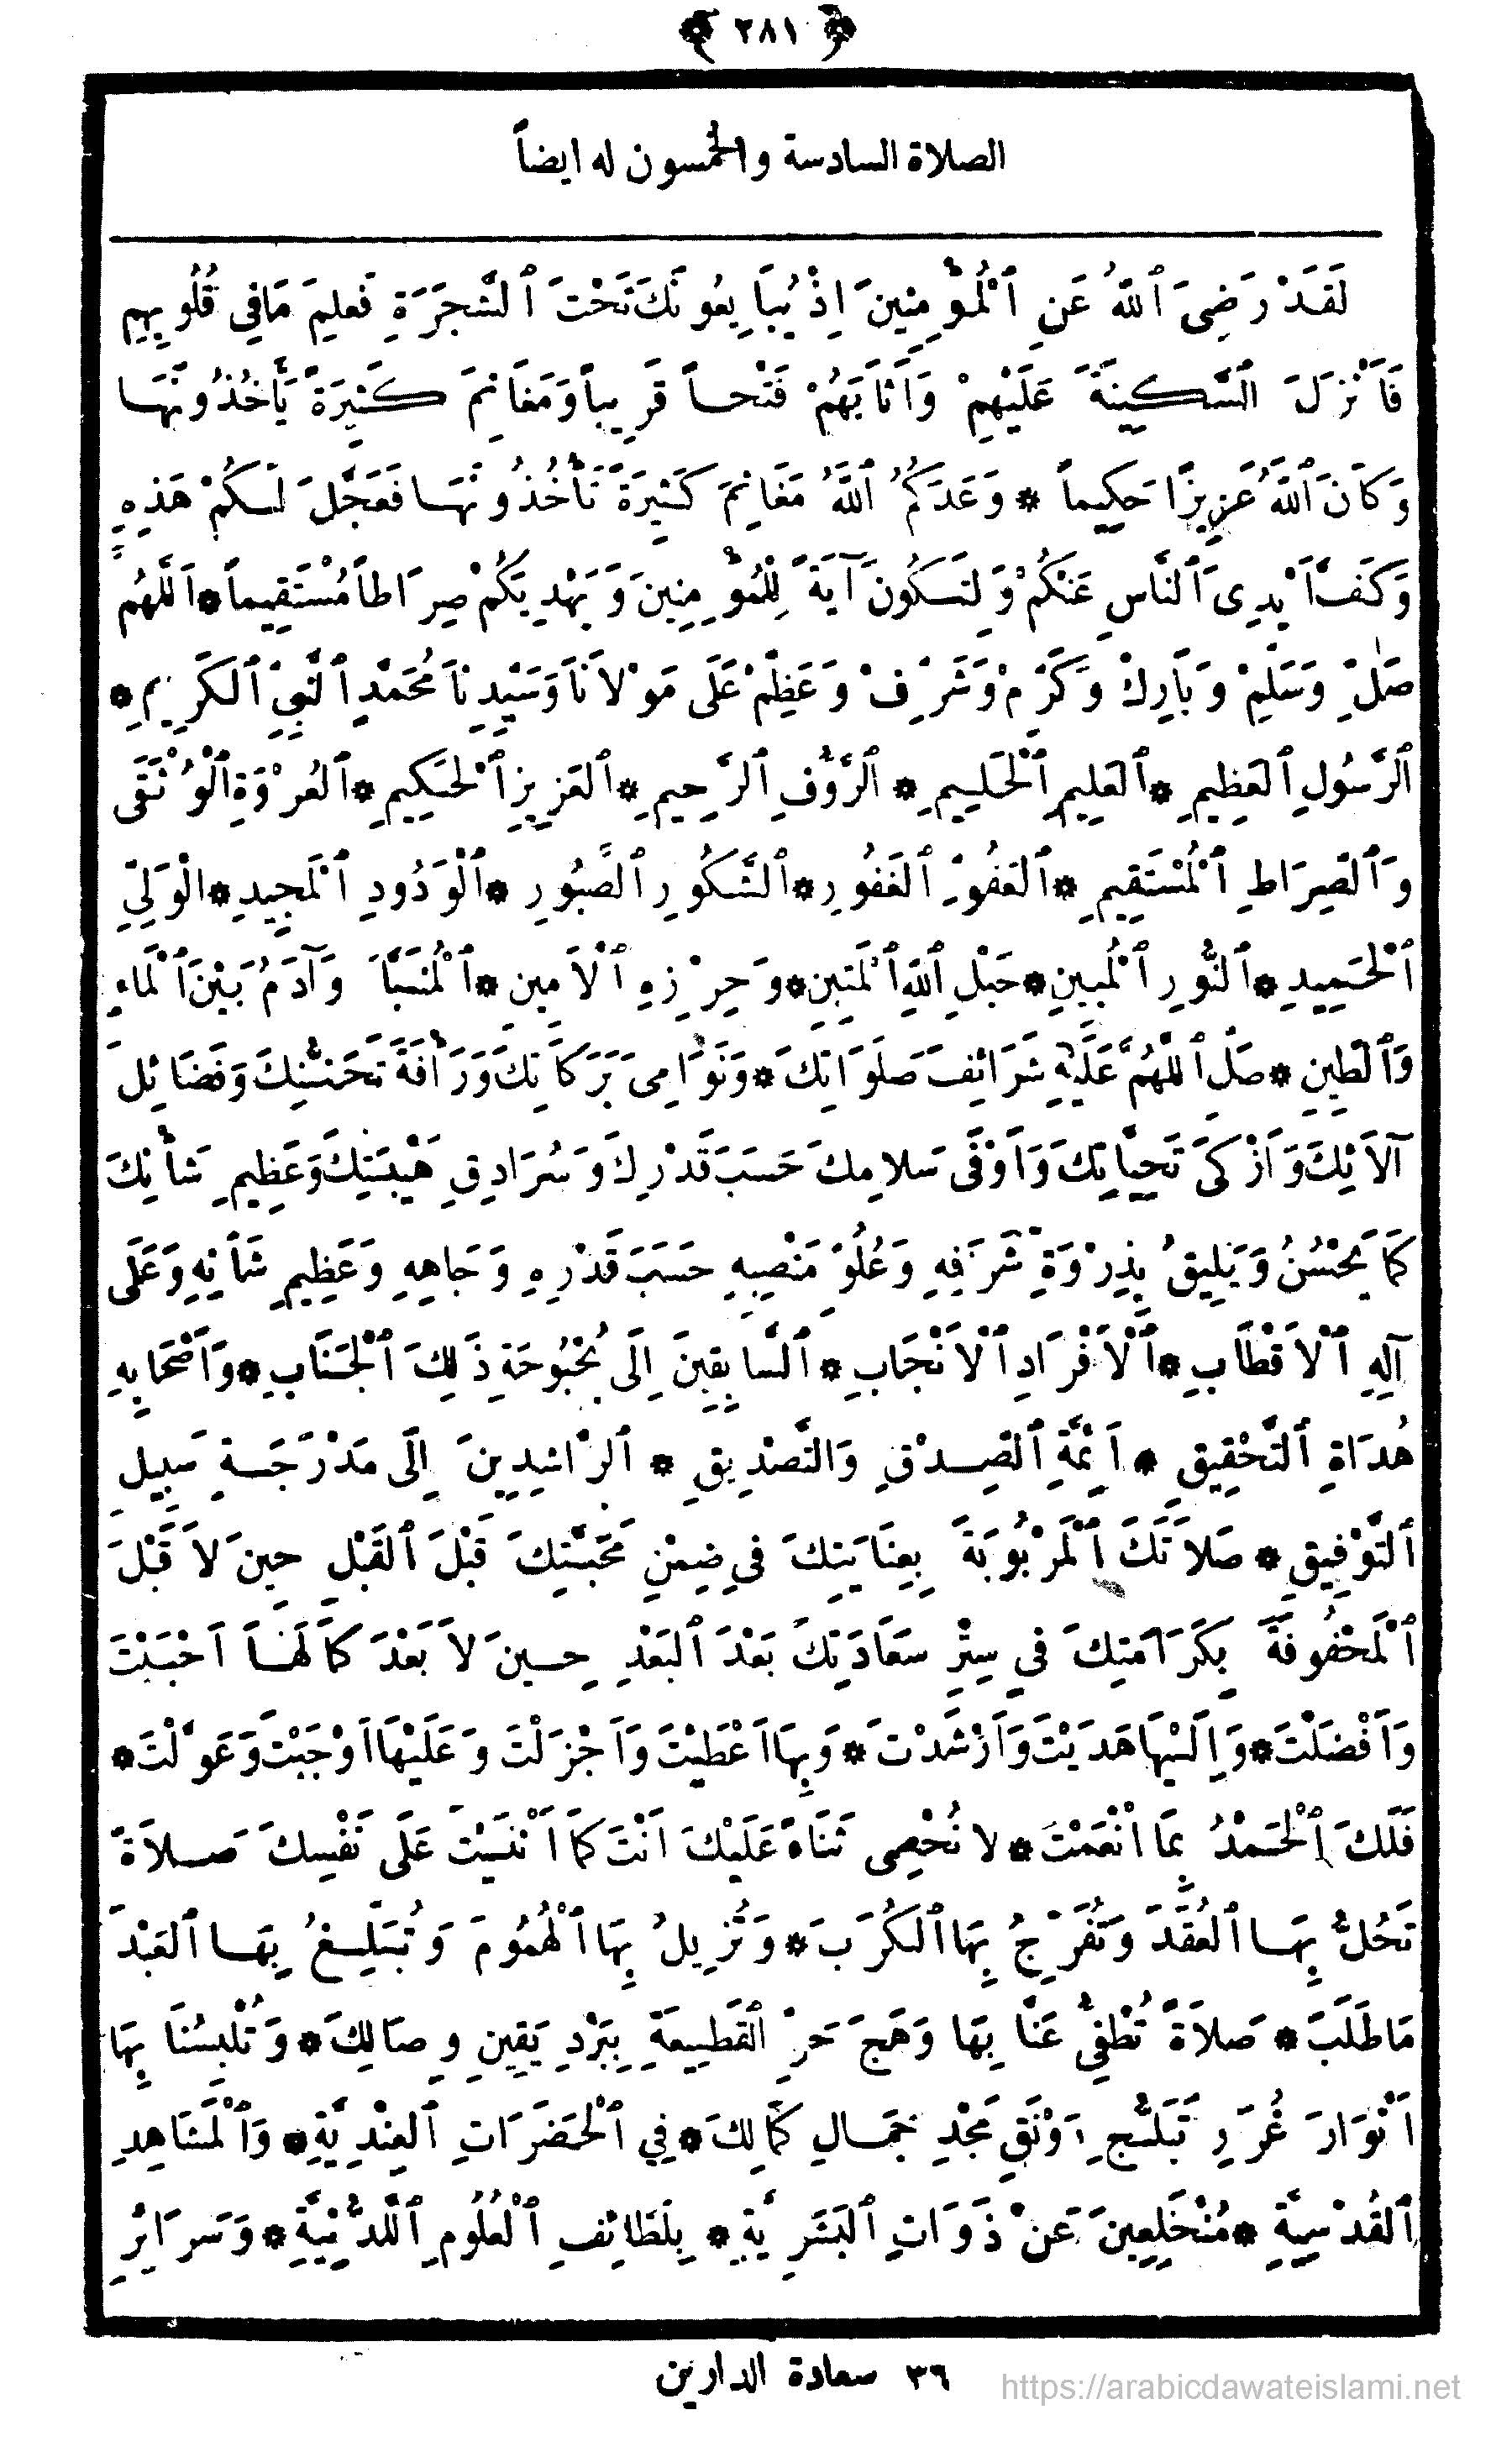 ﴿ ٢٨١ ﴾
الصلاة السادسة والخمسون له ايضاً
لَقَدْ رَضِىَ ٱللهُ عَنِ ٱلْمُؤْمِنِينَ اِذْ يُبَايِعُونَكَ تَحْتَ ٱلشَّجَرَةِ فَعَلِمَ مَا فِي قُلُوبِهِمْ
فَاَنْزَلَ ٱلسَّكِينَةَ عَلَيْهِمْ وَاَثَابَهُمْ فَتْحاً قَرِيباً وَمَغَانِمَ كَثِيرَةً يَأْخُذُونَهَا
وَكَانَ ٱللهُ عَزِيزًا حَكِيماً * وَعَدَكُمُ ٱللهُ مَغَانِمَ كَثِيرَةً تَأْخُذُونَهَا فَعَجَّلَ لَكُمْ هَذِهِ
وَكَفَّ اَيْدِىَ ٱلنَّاسِ عَنْكُمْ وَلِتَكُونَ آيَةً لِلْمُؤْمِنِينَ وَيَهْدِيَكُمْ صِرَاطاً مُسْتَقِيماً * اَللّٰهُمَّ
صَلِّ وَسَلِّمْ وَبَارِكْ وَكَرِّمْ وَشَرِّفْ وَعَظِّمْ عَلَى مَوْلاَنَا وَسَيِّدِنَا مُحَمَّدٍ ٱلنَّبِيِّ ٱلكَرِيمِ *
ٱلرَّسُولِ ٱلعَظِيمِ * ٱلعَلِيمِ ٱلْحَلِيمِ * ٱلرَّؤُفِ ٱلرَّحِيمِ * ٱلعَزِيزِ ٱلْحَكِيمِ * ٱلعُرْوَةِ ٱلْوُثْقَى
وَٱلصِّرَاطِ ٱلْمُسْتَقِيمِ * ٱلعَفُوِّ ٱلغَفُورِ * ٱلشَّكُورِ ٱلصَّبُورِ * ٱلْوَدُودِ ٱلْمَجِيدِ * الْوَلِيِّ
ٱلْحَمِيدِ * ٱلنُّورِ ٱلْمُبِينِ * حَبْلِ ٱللهِ ٱلْمَتِينِ * وَحِرْزِهِ ٱلْاَمِينِ * ٱلْمُنَبَّاَ وَآدَمُ بَيْنَ ٱلْمَاءِ
وَٱلطِّينِ * صَلِّ ٱللّٰهُمَّ عَلَيْهِ شَرَائِفَ صَلَوَاتِكَ * وَنَوَامِىَ بَرَكَاتِكَ وَرَأْفَةَ تَحَنُّنِكَ وَفَضَائِلَ
آلاَئِكَ وَاَزْكَى تَحِيَّاتِكَ وَاَوْفَى سَلامِكَ حَسَبَ قَدْرِكَ وَسُرَادِقِ هَيْبَتِكَ وَعَظِيمِ شَأْنِكَ
كَمَا يَحْسُنُ وَيَلِيقُ بِذِرْوَةِ شَرَفِهِ وَعُلُوِّ مَنْصِبِهِ حَسَبَ قَدْرِهِ وَجَاهِهِ وَعَظِيمِ شَاْنِهِ وَعَلَى
آلِهِ ٱلْاَقْطَابِ * ٱلْاَفْرَادِ ٱلْاَنْجَابِ * ٱلسَّابِقِينَ اِلَى بُحْبُوحَةِ ذَلِكَ ٱلْجَنَابِ * وَاَصْحَابِهِ
هُدَاةِ ٱلتَّحْقِيقِ * اَئِمَّةِ ٱلصِّدْقِ وَالتَّصْدِيقِ * ٱلرَّاشِدِينَ اِلَى مَدْرَجَةِ سَبِيلِ
ٱلتَّوْفِيقِ * صَلاَتَكَ ٱلْمَرْبُوبَةَ بِعِنَايَتِكَ فِي ضِمْنِ مَحَبَّتِكَ قَبْلَ ٱلقَبْلِ حِينَ لاَ قَبْلَ
ٱلْمَحْفُوفَةَ بِكَرَامَتِكَ فِي سِتْرِ سَعَادَتِكَ بَعْدَ ٱلبَعْدِ حِينَ لاَ بَعْدَ كَمَا لَهَا اَحْبَبْتَ
وَاَفْضَلْتَ * وَاِلَيْهَا هَدَيْتَ وَاَرْشَدْتَ * وَبِهَا اَعْطَيْتَ وَاَجْزَلْتَ وَعَلَيْهَا اَوْجَبْتَ وَعَوَّلْتَ *
فَلَكَ ٱلْحَمْدُ بِمَا اَنْعَمْتَ * لا نُحْصِى ثَنَاءً عَلَيْكَ اَنْتَ كَمَا اَثْنَيْتَ عَلَى نَفْسِكَ صَلاَةً
تَحُلُّ بِهَا ٱلعُقَدَ وَتُفَرِّجُ بِهَا ٱلكُرَبَ * وَتُزِيلُ بِهَا ٱلْهُمُومَ وَتُبَلِّغُ بِهَا ٱلعَبْدَ
مَا طَلَبَ * صَلاَةً تُطْفِئُ عَنَّا بِهَا وَهَجَ حَرِّ القَطِيعَةِ بِبَرْدِ يَقِينِ وِصَالِكَ * وَتُلْبِسُنَا بِهَا
اَنْوَارَ غُرَرِ تَبَلُّجِ رَوْنَقِ مَجْدِ جَمَالِ كَمَالِكَ * فِي ٱلْحَضَرَاتِ ٱلعِنْدِيَّةِ * وَٱلْمَشَاهِدِ
ٱلقُدْسِيَّةِ * مُنْخَلِعِينَ عَنْ ذَوَاتِ ٱلبَشَرِيَّةِ * بِلَطَائِفِ ٱلْعُلُومِ ٱللَّدُنِّيَّةِ * وَسَرَائِرِ
٣٦ سعادة الدارين
https://arabicdawateislami.net